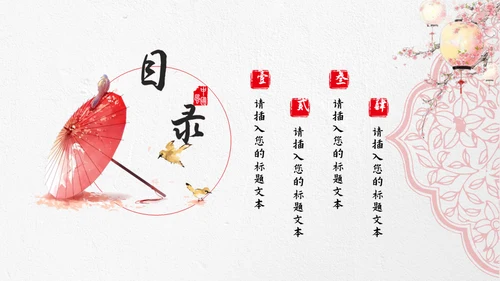 目录
中國風
壹
请插入您的标题文本
贰
请插入您的标题文本
叁
请插入您的标题文本
肆
请插入您的标题文本